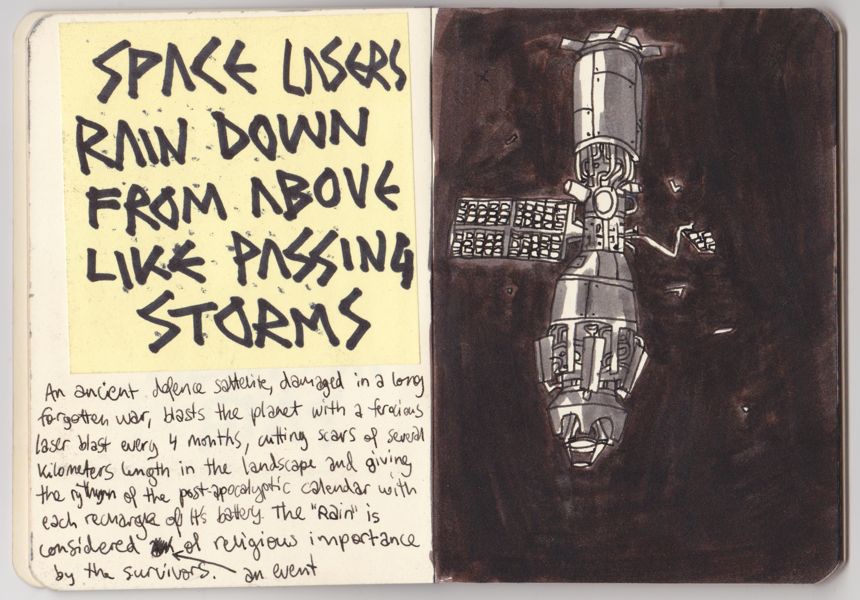 SPACE LASERS
RAIN DOWN
FROM ABOVE
LIKE PASSING
STORMS
An ancient defence sattelite, damaged in a long
forgotten war, blasts the planet with a ferocious
laser blast every 4 months, cutting scars of several
kilometers length in the landscape and giving
the of the post-apocalyptic calendar with
each recharge of it's battery. The "Rain" is
considered of religious importance
by the survivors. an event